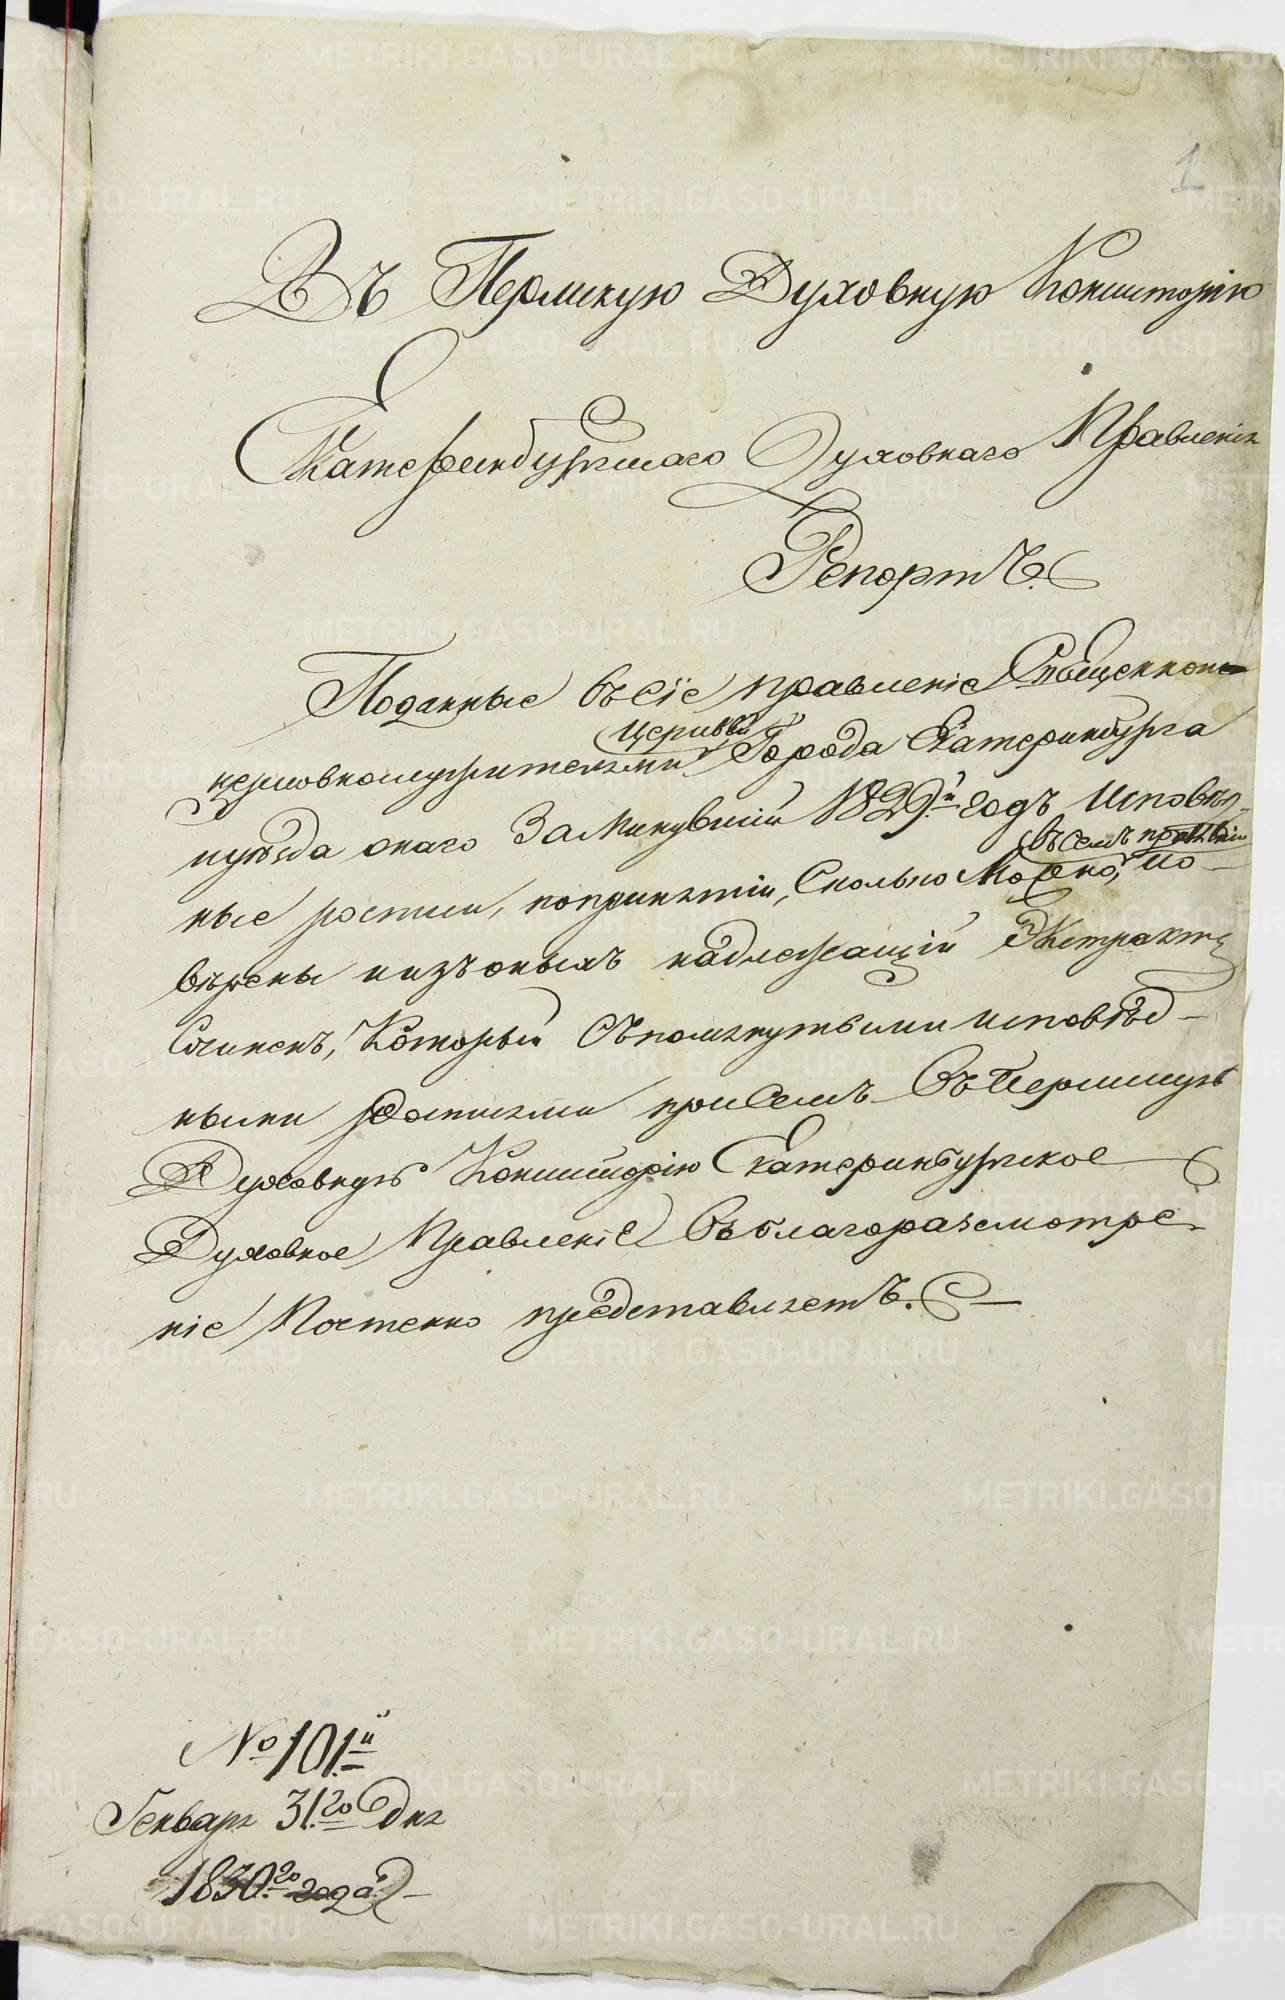 1
Въ Пермскую Духовную Консисторію
Екатеринбургскаго Духовнаго Правленія
Репортъ.
Поданные въ сіе правленіе Священноце-
церквей
рковнослужителями Города Екатеринбурга
и уѣзда онаго За минувшій 1829.й годъ Исповѣд-
въ семъ правленіи
ные росписи, по принятіи, Сколько Можно, по-
вѣрены и изъ оныхъ надлежащій Экстрактъ
Сочиненъ, Который Съ помянутыми исповѣд-
ными росписями при Семъ Въ Пермскую
Духовную Консисторію Екатеринбургское
Духовное Правленіе Въ благоразсмотре-
ніе Почтенно представляетъ.
№ 101.й
Генваря 31.го Дня
1830.го года
METRIKI.GASO-URAL.RU